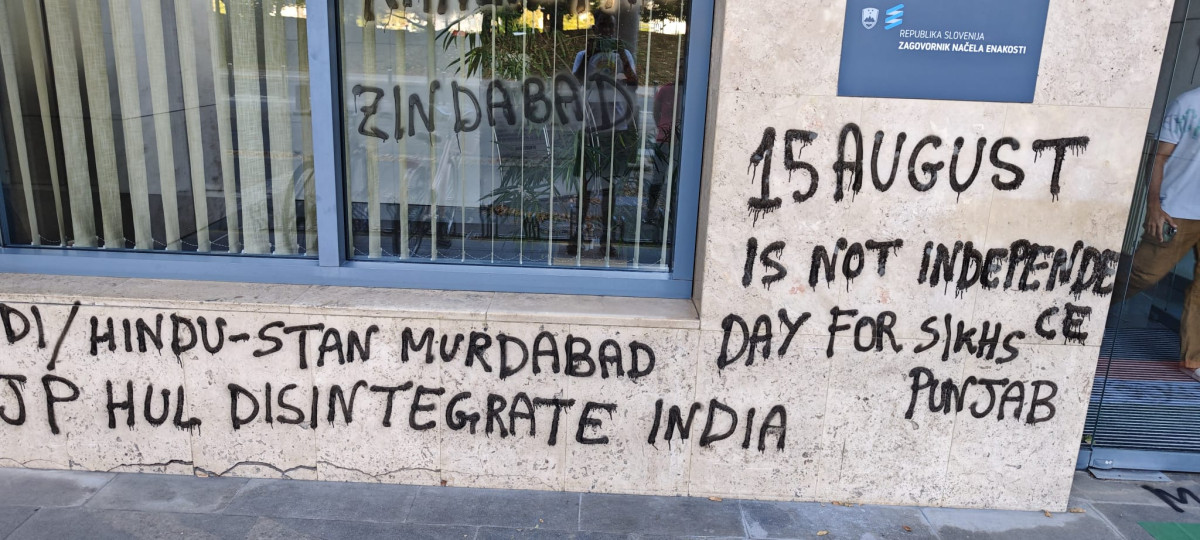 ZINDABAD
REPUBLIKA SLOVENIJA
ZAGOVORNIK NAČELA ENAKOSTI
15 AUGUST
IS NOT INDEPENDE
CE
DAY FOR SIKHS
PUNJAB
DI/HINDU-STAN MURDABAD
JP HUL DISINTEGRATE INDIA